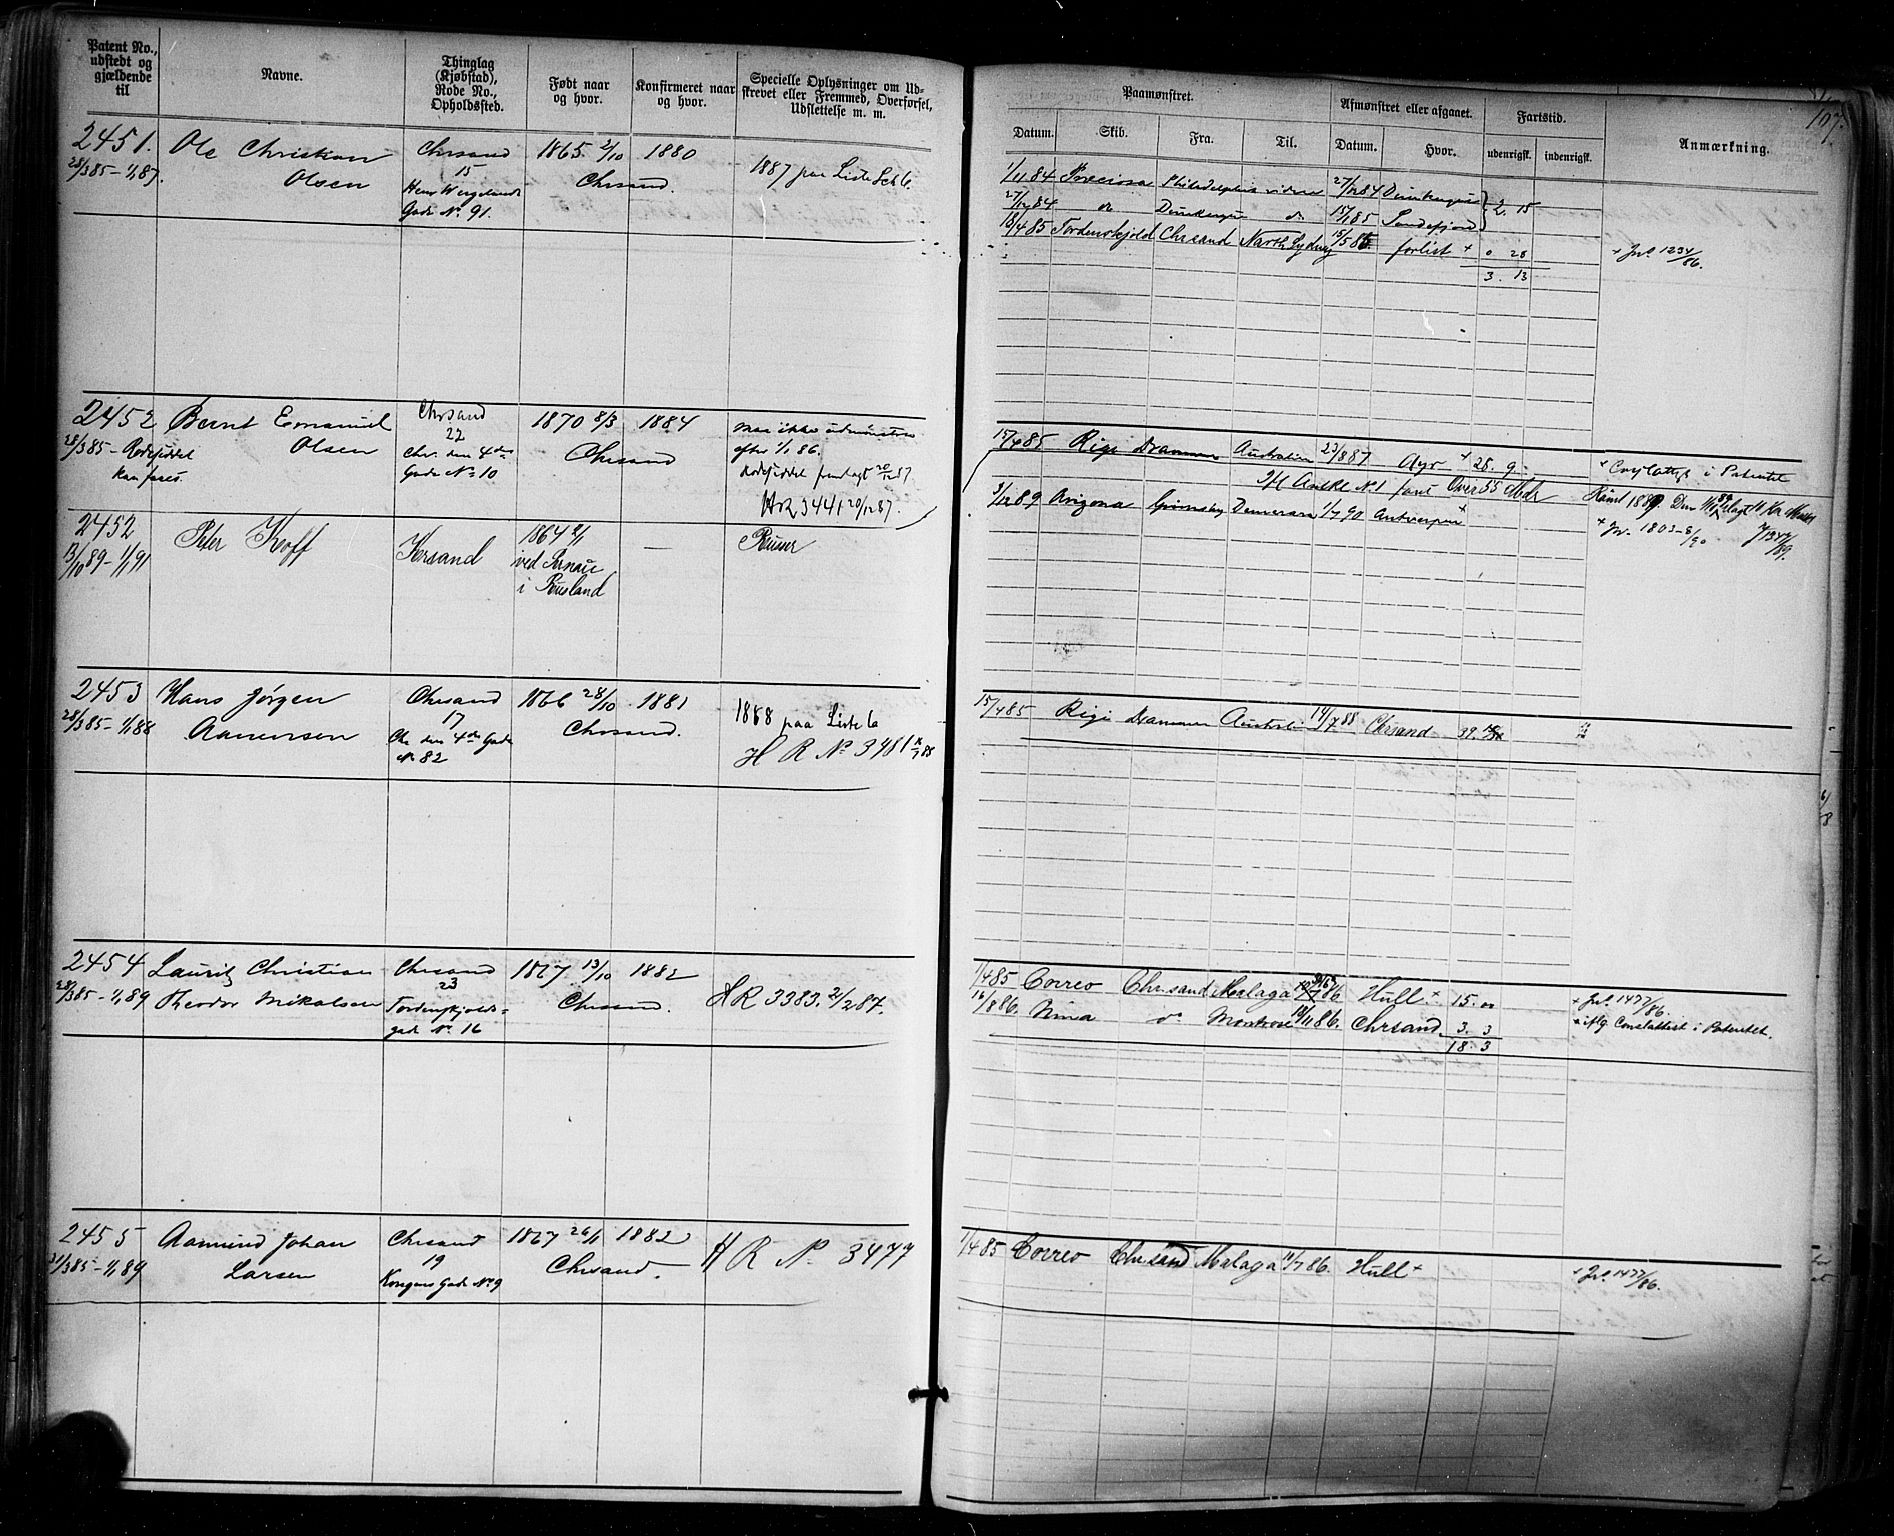 Patent No., udstedt og gjældende til
Navne.
Thinglag (Kjøbstad), Rode No., Opholdssted.
Født naar og hvor.
Konfirmeret naar og hvor.
Specielle Oplysninger om Udskrevet eller Fremmed, Overførsel, Udslettelse m. m.
Paamønstret.
Afmønstret eller afgaaet.
Fartstid.
197.
Datum.
Skib.
Fra.
Til.
Datum.
Hvor.
udenrigsk.
indenrigsk.
Anmærkning.
2451. Ole Christian Chrsand 1865 2/10 1880
28/3 85 - 1/1 87. Olsen 15 Chrsand. 1887 paa Liste
Gade No 91.
1/11 84 Preciosa Philadelphia videre 27/12 84 Dunkerque
27/12 84 do Dunkerque do 15/1 85 Sandefjord 2. 15
18/4 85 Tordenskjold Chrsand North Sydney 15/5 85 forlist + 0 28 + Jnl. 1234/86.
3. 13
2452 Bernt Emanuel Chrsand 1870 8/3 1884 maa ikke udmønstres
28/3 85 - Rodeseddel Olsen 22 Chrsand efter 1/1 86.
kan faaes. Chr. den 4des Rodeseddel fremlagt 20/12 87.
Gade No 10
HR 3441 20/12 87.
15/4 85 Rigi Drammen Australien 23/8 87 Ayr + 28. 9. + i Patentet
2452 Peter Koff Krsand 1864 2/1 — Russer
13/10 89 - 1/1 91 ved Pernau
i Rusland
3/12 89 Arizona Grimsby Demerara 1/7 90 Antwerpen +
+ Jr. 1803 - 8/90
2453 Hans Jørgen Chrsand 1866 28/10 1881 1888 paa Liste 6
28/3 85 - 1/1 88 Aanensen 17 Chrsand.
Chr den 4des Gade
No 82
H R No 3481
15/4 85 Rigi Drammen Australi 14/7 88 Chrsand 39.
2454 Lauritz Christian Chrsand 1867 13/10 1882
28/3 85 - 1/1 89 Theodor Mikalsen 23 Chrsand. HR 3383. 21/2 87.
Tordenskjolds-
gade No 16
1/4 85 Correo Chrsand Malaga Hull + 15. + Jnl. 1477/86.
16/8 86. Nina do Montrose 18/11 86. Chrsand. 3. 3 i Patentet.
18. 3
2455 Aamund Johan Chrsand 1867 26/11 1882 H R No 3477
31/3 85 - 1/1 89 Larsen 19 Chrsand.
Kongens Gade No 9
1/4 85 Correo Chrsand Malaga 11/7 86. Hull + + Jnl. 1477/86.